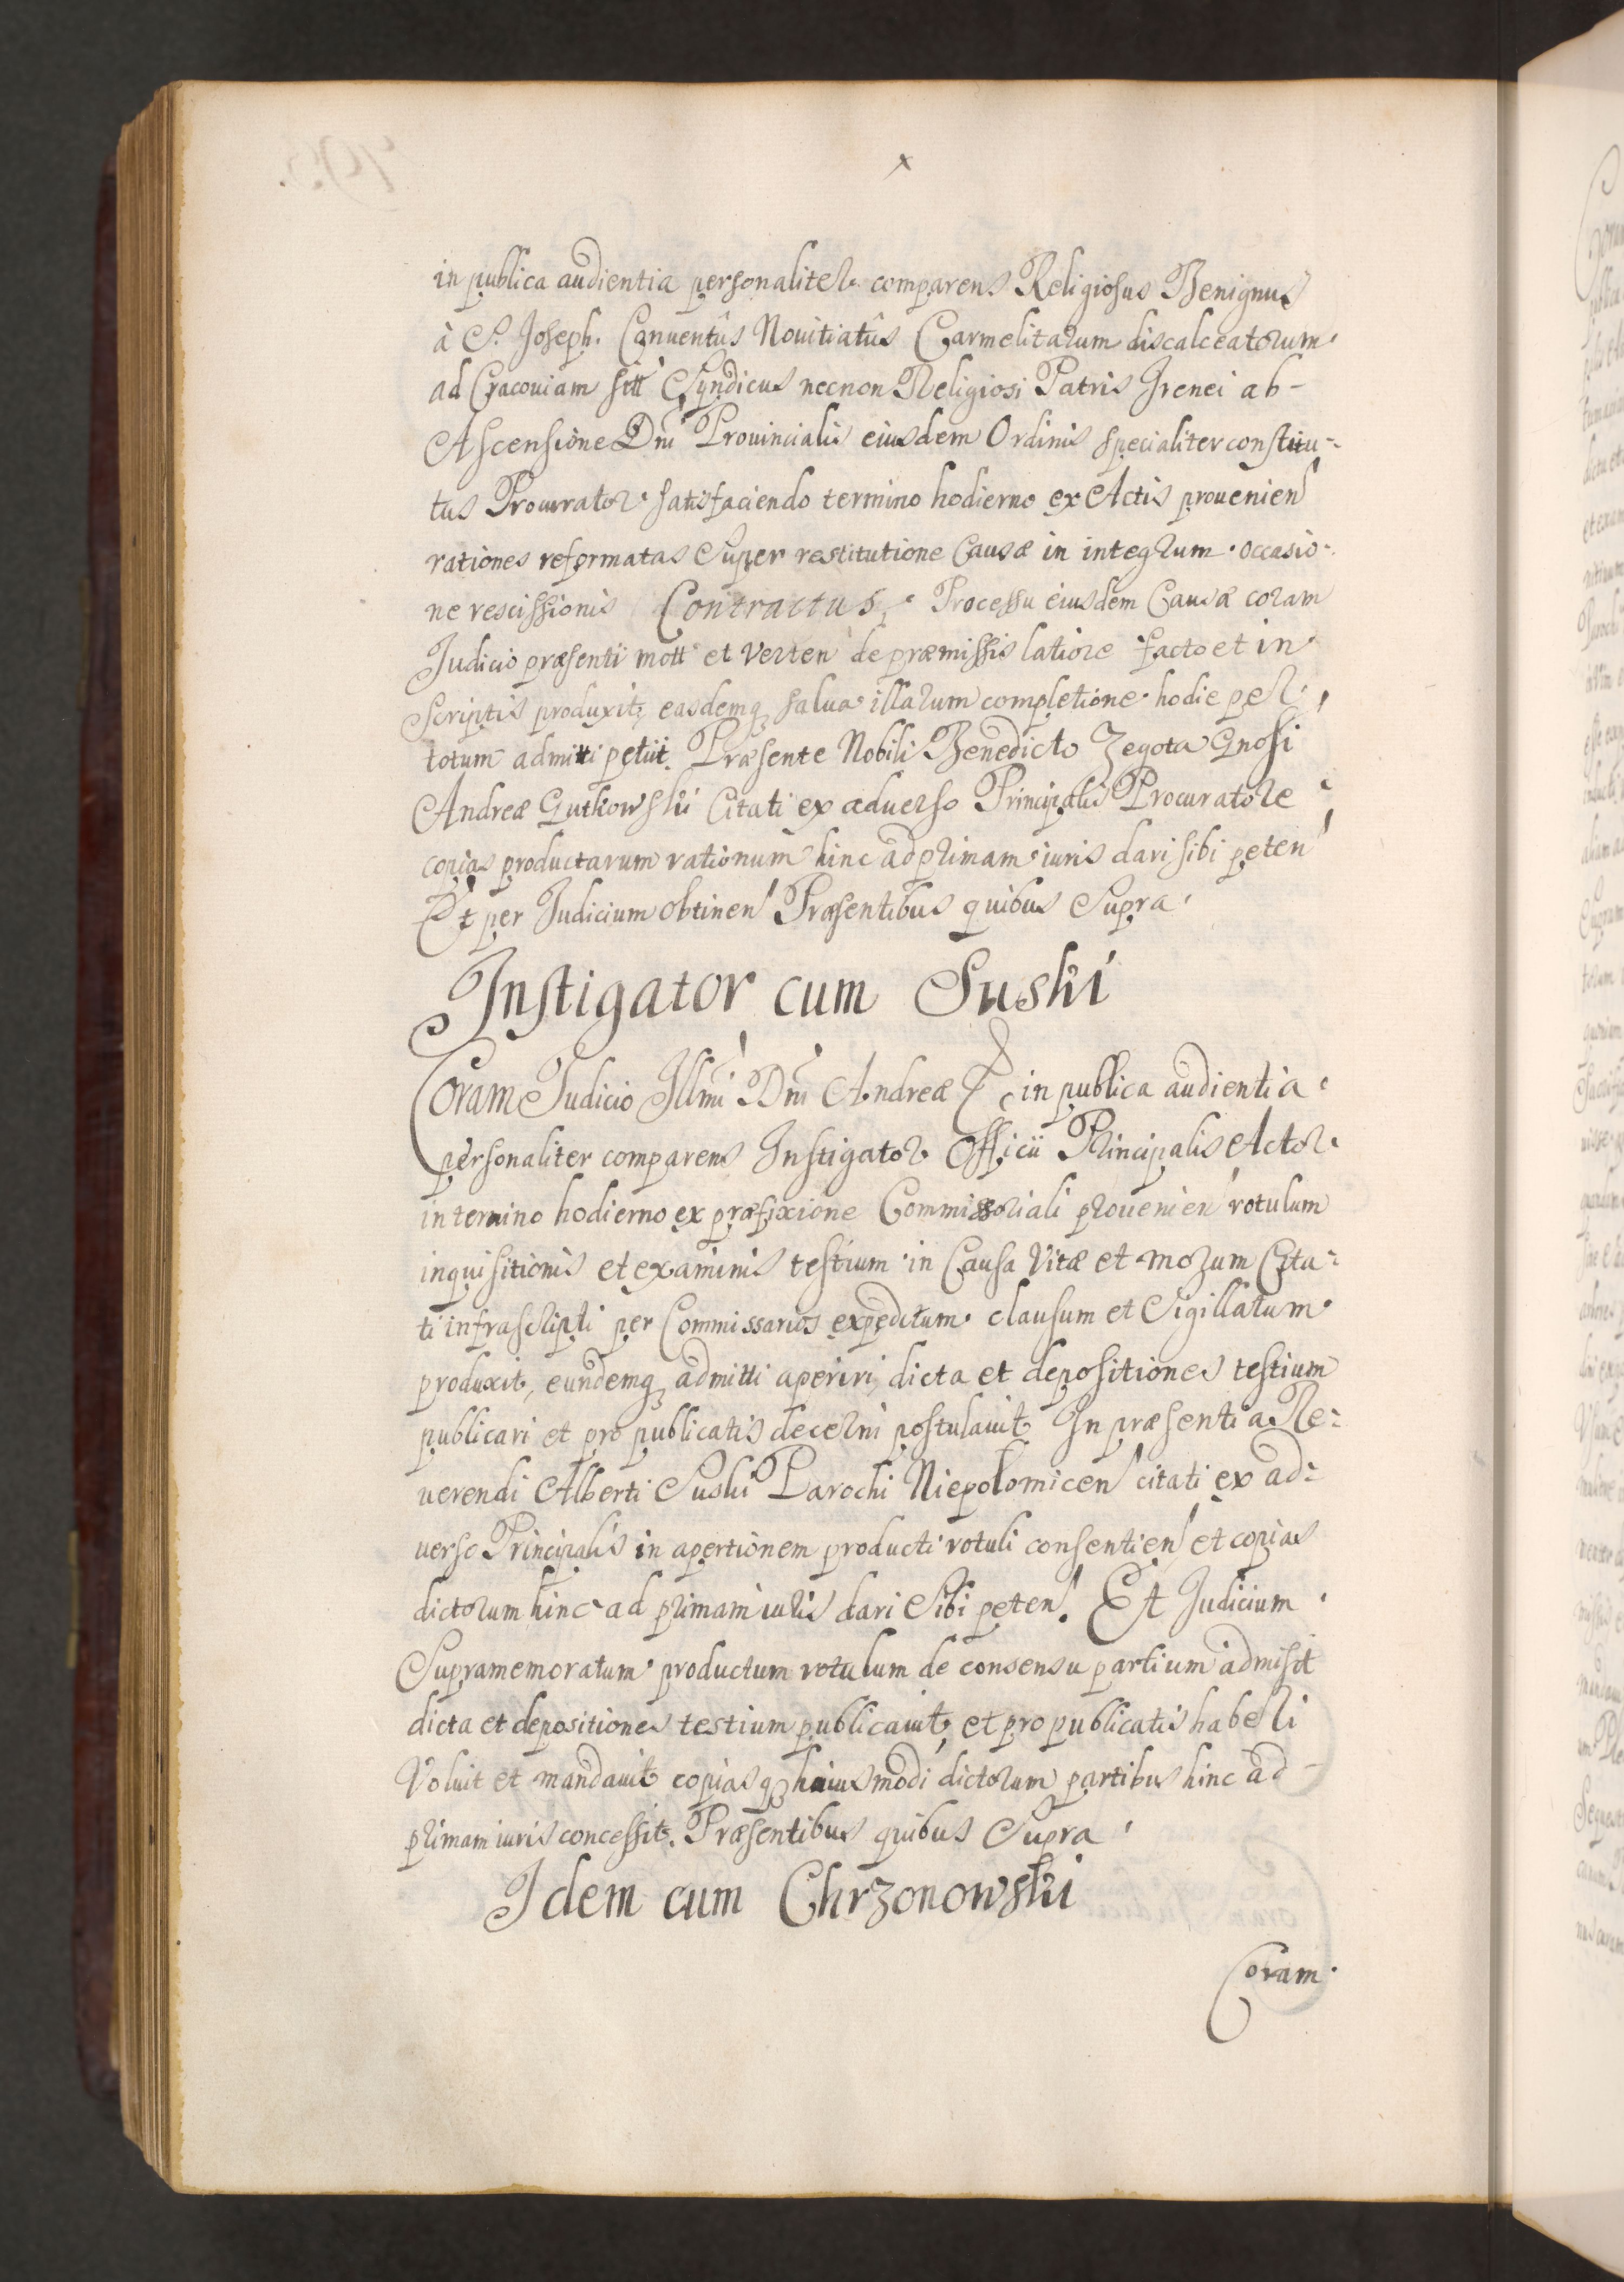 in publica audientia personaliter comparens Religiosus Benignus
à S. Joseph. Conuentûs Nouitiatûs Carmelitarum discalceatorum
ad Cracouiam sitt Syndicus necnon Religiosi Patris Irenei ab-
Ascensione Dni Prouincialis eiusdem Ordinis specialiter constitu-
tus Procurator satisfaciendo termino hodierno ex Actis prouenien
rationes reformatas super restitutione Causæ in integrum occasio-
ne rescissionis Contractus, Processu eiusdem Causæ coram
Judicio præsenti mott et verten de præmissis latiore facto et in
Scriptis produxit, easdemq salua illarum completione hodie per
totum admitti petiit. Præsente Nobili Benedicto Zegota Gnosi
Andreæ Gutkowski Citati ex aduerso Principalis Procuratore
copias productarum rationum hinc ad primam iuris dari sibi peten
Et per Judicium obtinen Præsentibus quibus Supra
Instigator cum Suski
Coram Judicio Illmi Dni Andreæ in publica audientia
personaliter comparens Instigator Officii Principalis Actor
in termino hodierno ex præfixione Commissoriali prouenien rotulum
inquisitionis et examinis testium in Causa Vitæ et morum Cita-
ti infrascripti per Commissarios expeditum clausum et Sigillatum
produxit, eundemq admitti aperiri, dicta et depositiones testium
publicari et pro publicatis decerni postulauit In præsentia Re-
uerendi Alberti Suski Parochi Niepołomicen citati ex ad-
uerso Principalis in apertionem producti rotuli consentien et copias
dictorum hinc ad primam iuris dari Sibi peten. Et Judicium
Supramemoratum productum rotulum de consensu partium admisit
dicta et depositiones testium publicauit, et pro publicatis haberi
Voluit et mandauit copiasq huiusmodi dictorum partibus hinc ad
primam iuris concessit. Præsentibus quibus Supra
Idem cum Chrzonowski
Coram